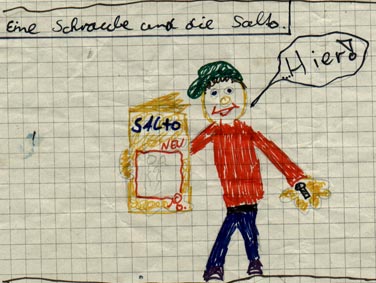 Eine Schraube und die Salto.
...Hier!
SALTO
NEU